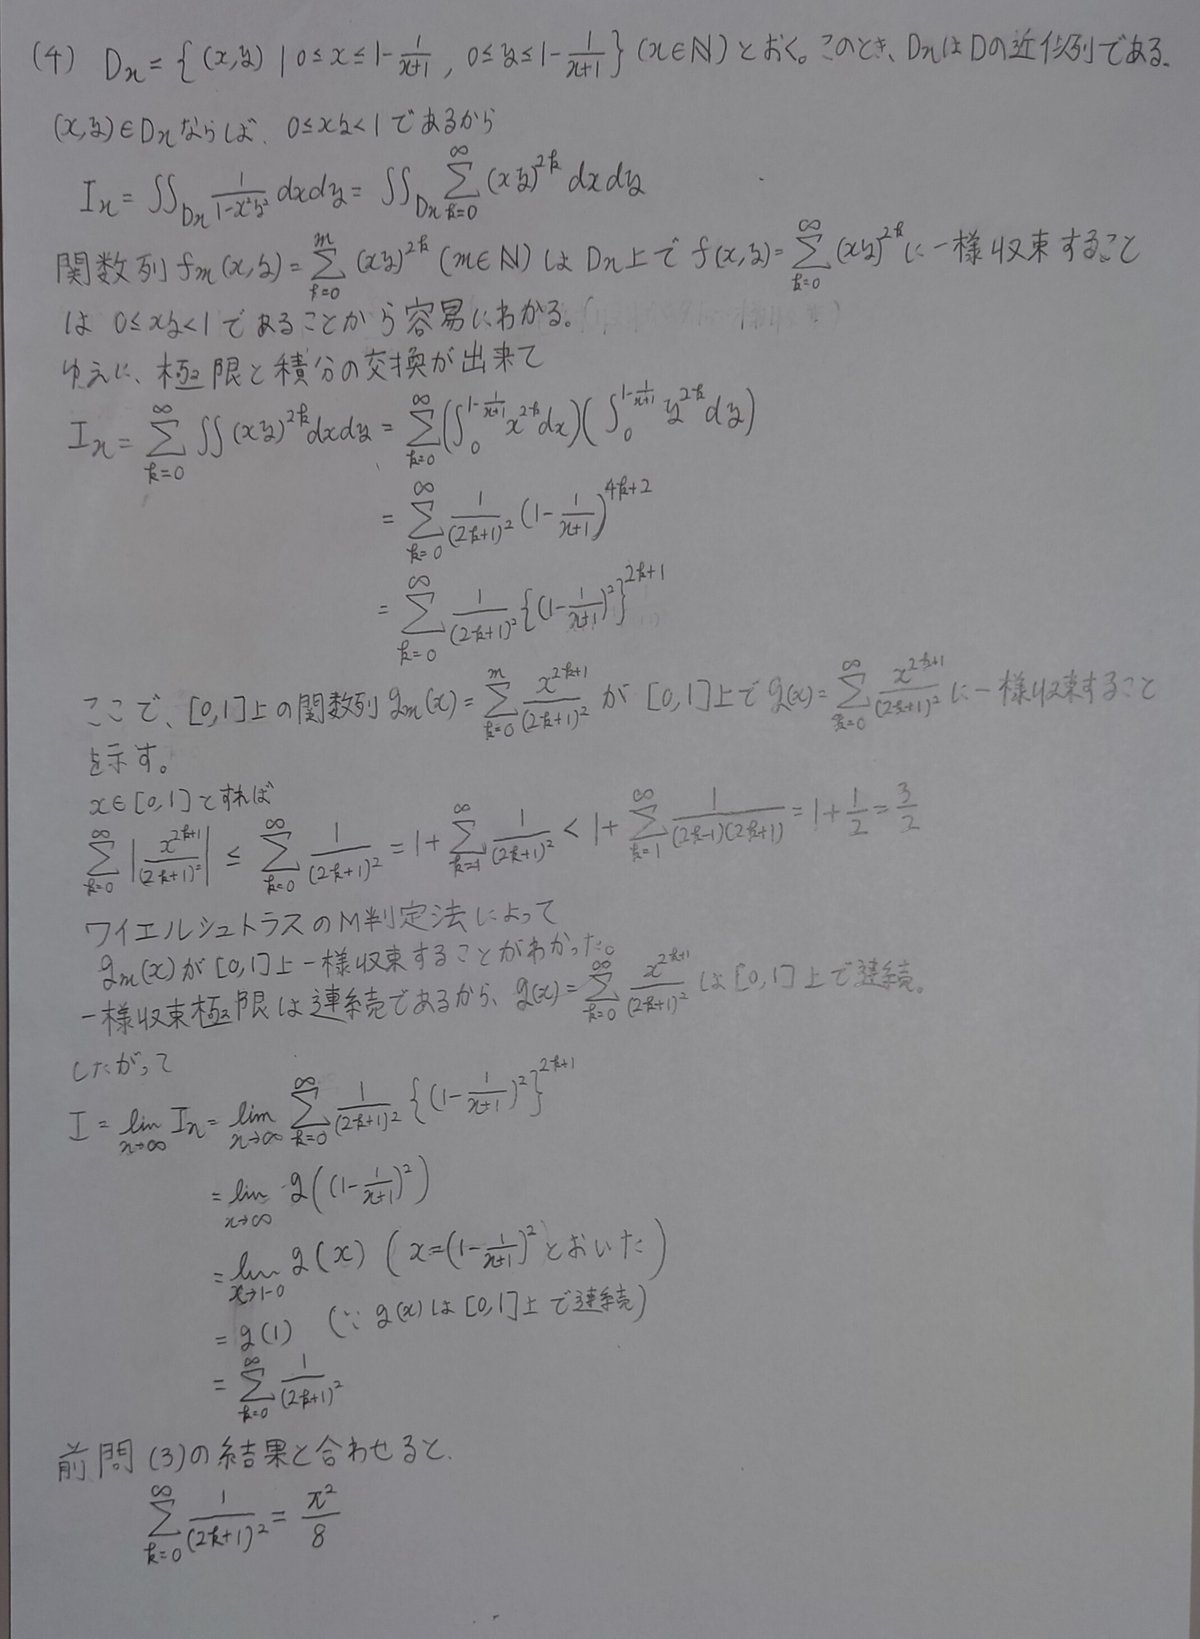 (4) Dn = { (x,y) | 0≤x≤1-1/(n+1) , 0≤y≤1-1/(n+1) } (n∈ℕ) とおく。このとき、DnはDの近似列である。
(x,y)∈Dnならば、0≤xy<1であるから
In = ∬_{Dn} 1/(1-x²y²) dxdy = ∬_{Dn} Σ_{k=0}^{∞} (xy)^{2k} dxdy
関数列 fm(x,y) = Σ_{k=0}^{m} (xy)^{2k} (m∈ℕ) は Dn上で f(x,y) = Σ_{k=0}^{∞} (xy)^{2k} に一様収束すること
は 0≤xy<1であることから容易にわかる。
ゆえに、極限と積分の交換が出来て
In = Σ_{k=0}^{∞} ∬ (xy)^{2k} dxdy = Σ_{k=0}^{∞} (∫_0^{1-1/(n+1)} x^{2k} dx)(∫_0^{1-1/(n+1)} y^{2k} dy)
= Σ_{k=0}^{∞} 1/(2k+1)² (1-1/(n+1))^{4k+2}
= Σ_{k=0}^{∞} 1/(2k+1)² {(1-1/(n+1))²}^{2k+1}
ここで、[0,1]上の関数列 gm(x) = Σ_{k=0}^{m} x^{2k+1}/(2k+1)² が [0,1]上で g(x) = Σ_{k=0}^{∞} x^{2k+1}/(2k+1)² に一様収束すること
を示す。
x∈[0,1]とすれば
Σ_{k=0}^{∞} |x^{2k+1}/(2k+1)²| ≤ Σ_{k=0}^{∞} 1/(2k+1)² = 1+Σ_{k=1}^{∞} 1/(2k+1)² < 1+Σ_{k=1}^{∞} 1/((2k-1)(2k+1)) = 1+1/2 = 3/2
ワイエルシュトラスのM判定法によって
gm(x)が[0,1]上一様収束することがわかった。
一様収束極限は連続であるから、g(x) = Σ_{k=0}^{∞} x^{2k+1}/(2k+1)² は[0,1]上で連続。
したがって
I = lim_{n→∞} In = lim_{n→∞} Σ_{k=0}^{∞} 1/(2k+1)² {(1-1/(n+1))²}^{2k+1}
= lim_{n→∞} g((1-1/(n+1))²)
= lim_{x→1-0} g(x) (x=(1-1/(n+1))²とおいた)
= g(1) (∵ g(x)は[0,1]上で連続)
= Σ_{k=0}^{∞} 1/(2k+1)²
前問(3)の結果と合わせると、
Σ_{k=0}^{∞} 1/(2k+1)² = π²/8